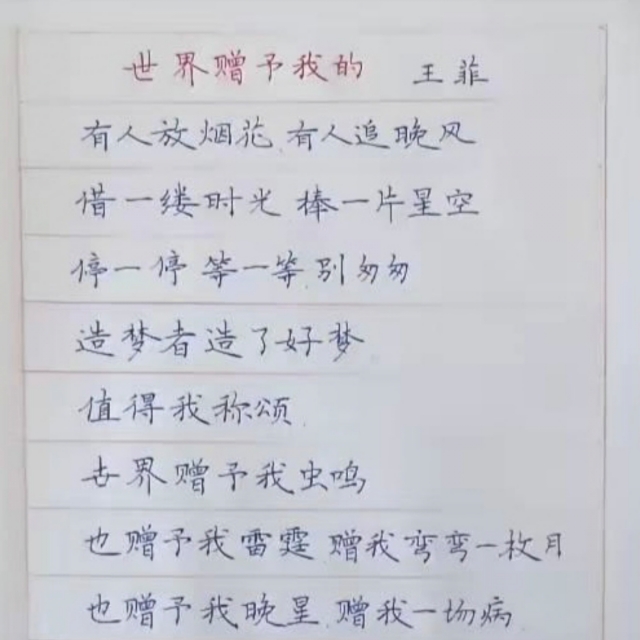 世界赠予我的 王菲
有人放烟花 有人追晚风
借一缕时光 捧一片星空
停一停 等一等 别匆匆
造梦者造了好梦
值得我称颂
世界赠予我虫鸣
也赠予我雷霆 赠我弯弯一枚月
也赠予我晚星 赠我一场病